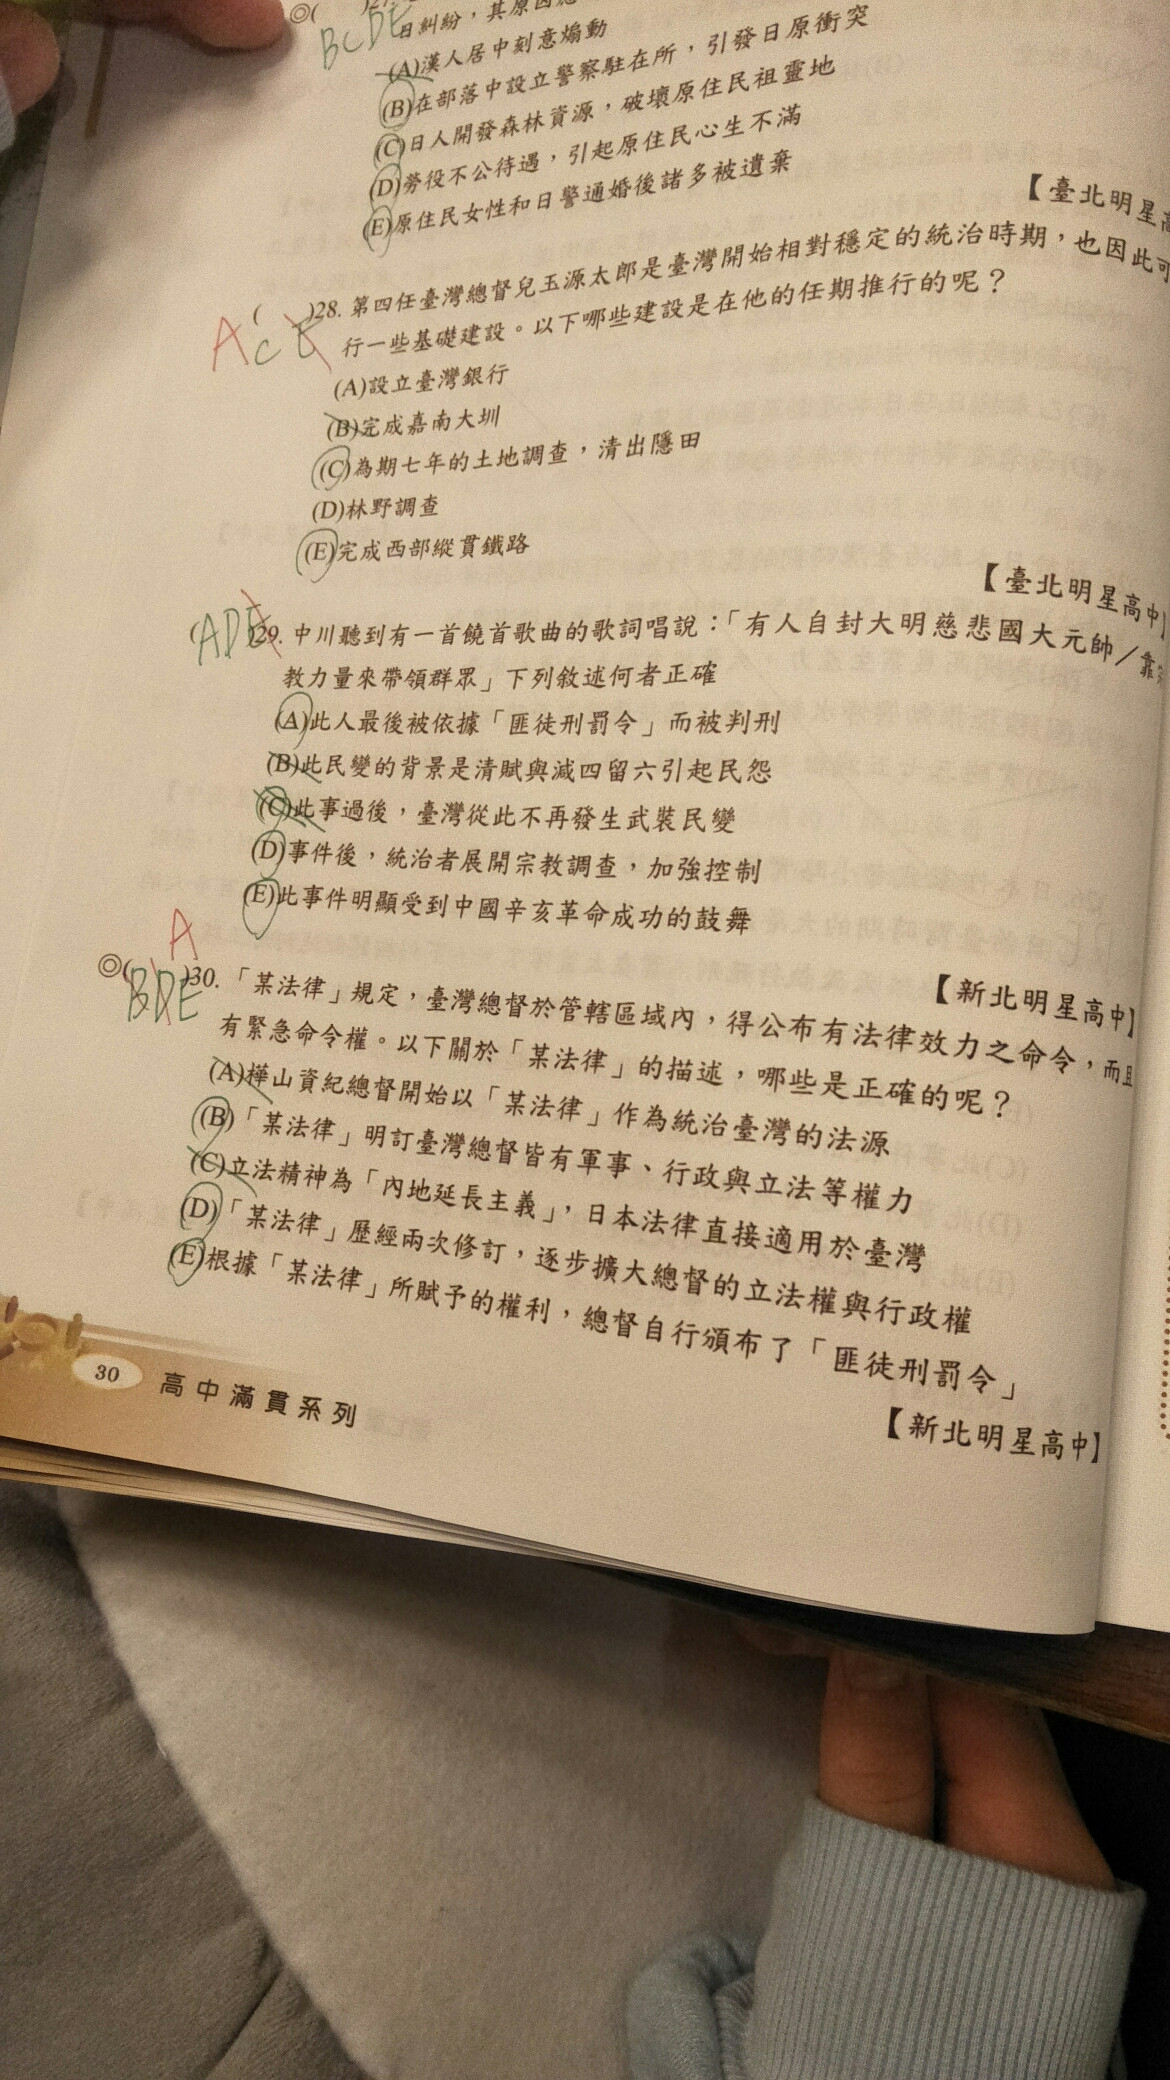 ◎( )27.
BCDE
日糾紛，其原因
(A)漢人居中刻意煽動
(B)在部落中設立警察駐在所，引發日原衝突
(C)日人開發森林資源，破壞原住民祖靈地
(D)勞役不公待遇，引起原住民心生不滿
(E)原住民女性和日警通婚後諸多被遺棄
【臺北明星高
( )28. 第四任臺灣總督兒玉源太郎是臺灣開始相對穩定的統治時期，也因此可
A C E
行一些基礎建設。以下哪些建設是在他的任期推行的呢？
(A)設立臺灣銀行
(B)完成嘉南大圳
(C)為期七年的土地調查，清出隱田
(D)林野調查
(E)完成西部縱貫鐵路
【臺北明星高中】
(ADE)29. 中川聽到有一首饒首歌曲的歌詞唱說：「有人自封大明慈悲國大元帥／靠
教力量來帶領群眾」下列敘述何者正確
(A)此人最後被依據「匪徒刑罰令」而被判刑
(B)此民變的背景是清賦與減四留六引起民怨
(C)此事過後，臺灣從此不再發生武裝民變
(D)事件後，統治者展開宗教調查，加強控制
(E)此事件明顯受到中國辛亥革命成功的鼓舞
【新北明星高中】
A
◎(BDE)30. 「某法律」規定，臺灣總督於管轄區域內，得公布有法律效力之命令，而且
有緊急命令權。以下關於「某法律」的描述，哪些是正確的呢？
(A)樺山資紀總督開始以「某法律」作為統治臺灣的法源
(B)「某法律」明訂臺灣總督皆有軍事、行政與立法等權力
(C)立法精神為「內地延長主義」，日本法律直接適用於臺灣
(D)「某法律」歷經兩次修訂，逐步擴大總督的立法權與行政權
(E)根據「某法律」所賦予的權利，總督自行頒布了「匪徒刑罰令」
【新北明星高中】
30 高中滿貫系列